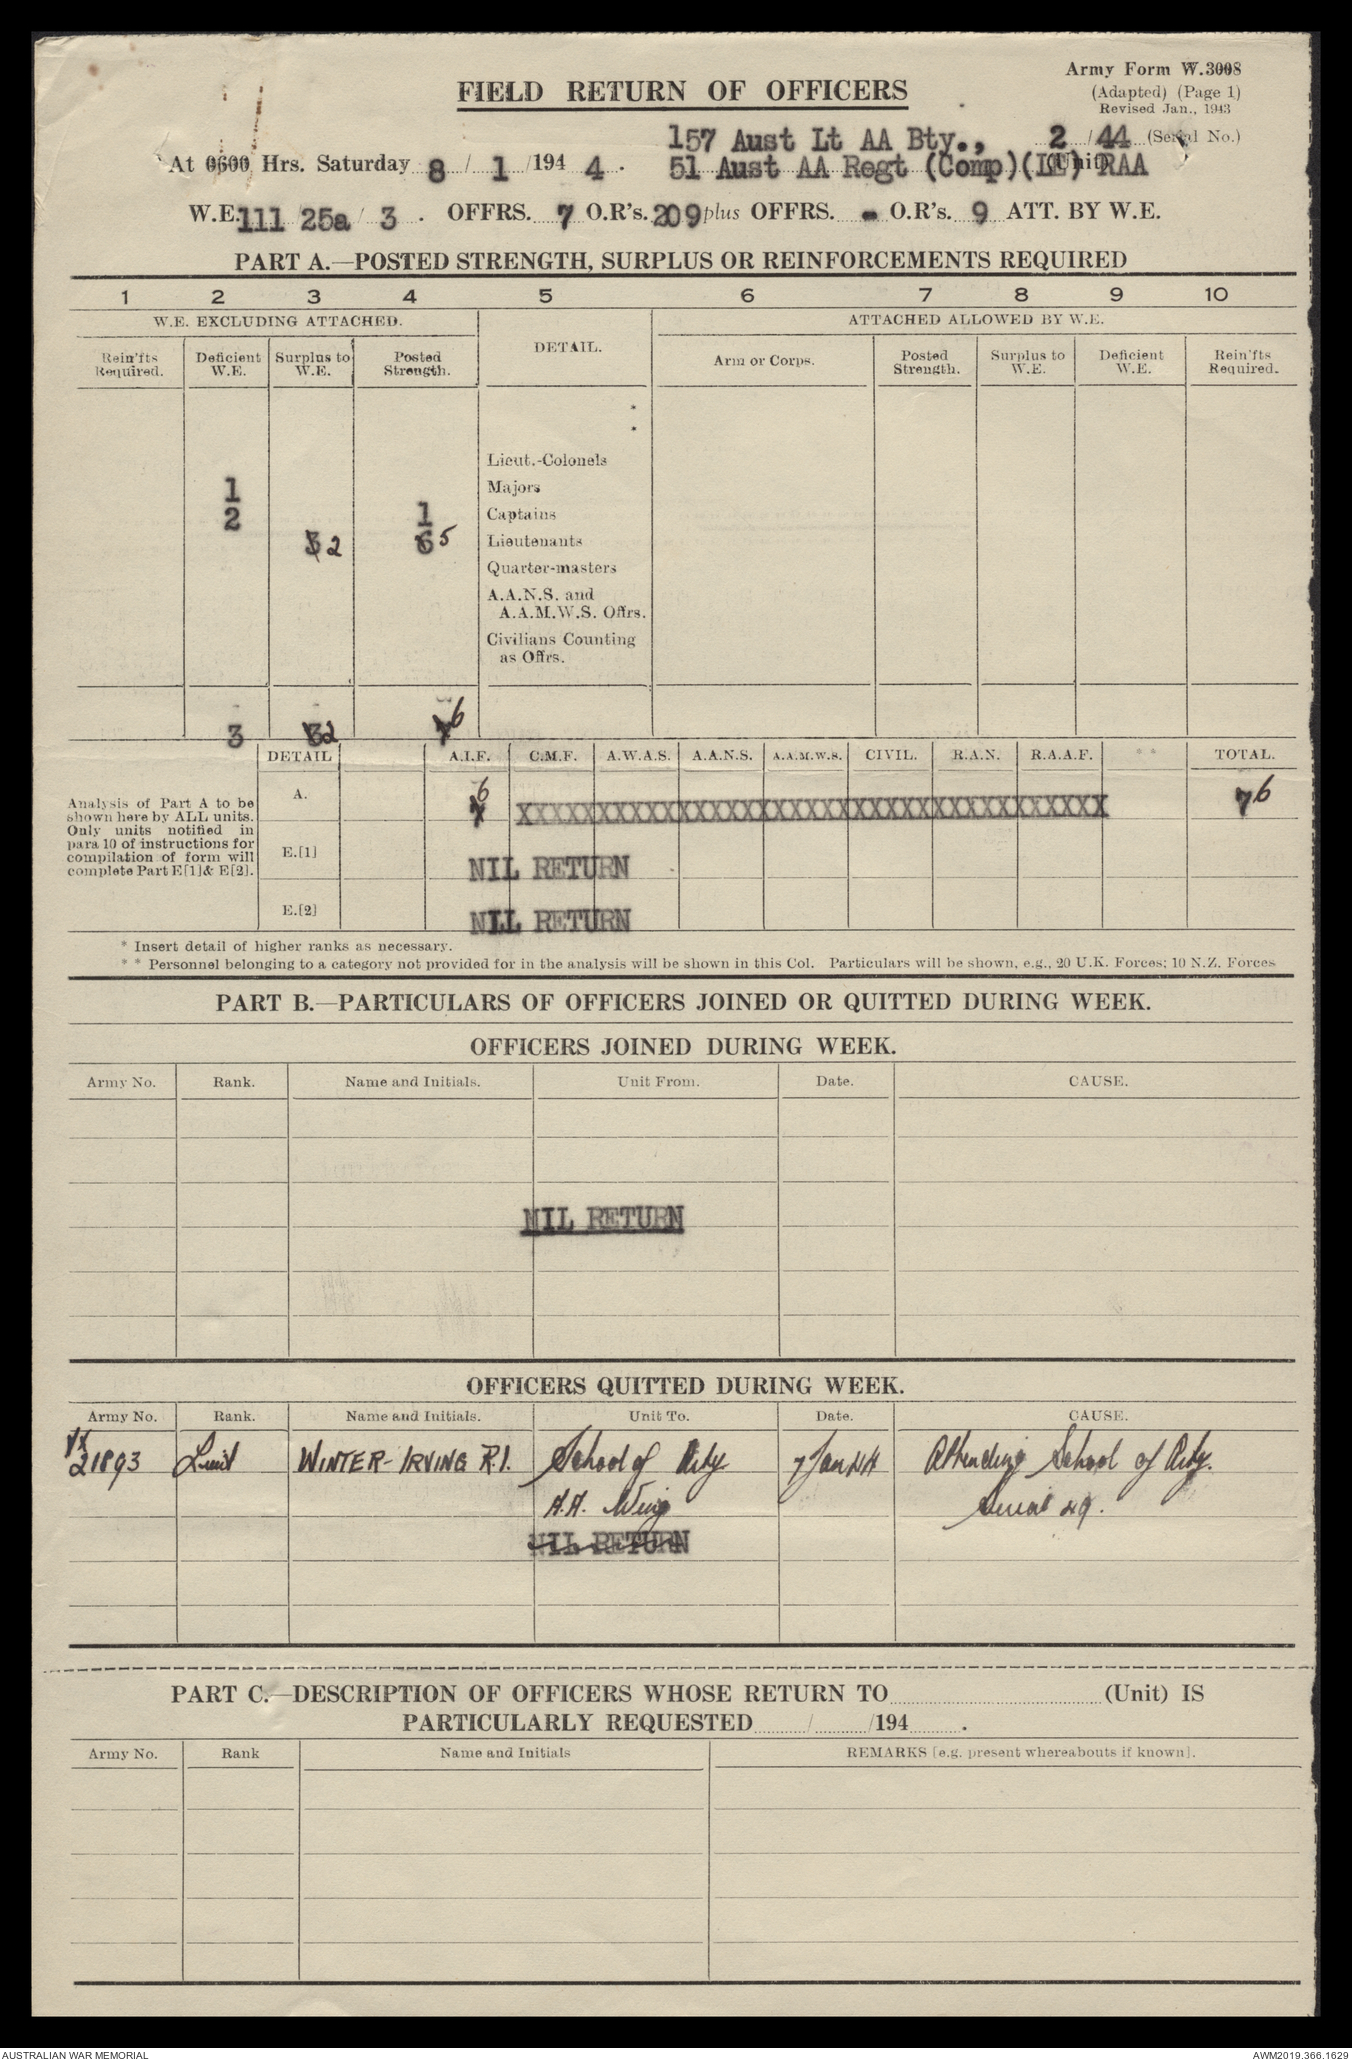 Army Form W.3008
FIELD RETURN OF OFFICERS
(Adapted) (Page 1)
Revised Jan., 1943
157 Aust Lt AA Bty., 2/44 (Serial No.)
At 0600 Hrs. Saturday 8/1/1944. 51 Aust AA Regt (Comp)(LE) RAA (Unit)
W.E. 111 25a/3. OFFRS. 7 O.R's. 209 plus OFFRS. - O.R's. 9 ATT. BY W.E.
PART A.—POSTED STRENGTH, SURPLUS OR REINFORCEMENTS REQUIRED
1 2 3 4 5 6 7 8 9 10
W.E. EXCLUDING ATTACHED. DETAIL. ATTACHED ALLOWED BY W.E.
Rein'fts Required. Deficient W.E. Surplus to W.E. Posted Strength. Arm or Corps. Posted Strength. Surplus to W.E. Deficient W.E. Rein'fts Required.
*
*
Lieut.-Colonels
1 Majors
2 1 Captains
3 2 6 5 Lieutenants
Quarter-masters
A.A.N.S. and
A.A.M.W.S. Offrs.
Civilians Counting
as Offrs.
3 3 2 7 6
DETAIL A.I.F. C.M.F. A.W.A.S. A.A.N.S. A.A.M.W.S. CIVIL. R.A.N. R.A.A.F. * * TOTAL.
Analysis of Part A to be
shown here by ALL units.
Only units notified in
para 10 of instructions for
compilation of form will
complete Part E[1]& E[2].
A. 7 6 XXXXXXXXXXXXXXXXXXXXXXXXXXXXXXXXXXXX 7 6
E.[1] NIL RETURN
E.[2] NIL RETURN
* Insert detail of higher ranks as necessary.
* * Personnel belonging to a category not provided for in the analysis will be shown in this Col. Particulars will be shown, e.g., 20 U.K. Forces; 10 N.Z. Forces
PART B.—PARTICULARS OF OFFICERS JOINED OR QUITTED DURING WEEK.
OFFICERS JOINED DURING WEEK.
Army No. Rank. Name and Initials. Unit From. Date. CAUSE.
NIL RETURN
OFFICERS QUITTED DURING WEEK.
Army No. Rank. Name and Initials. Unit To. Date. CAUSE.
VX
21893 Lieut WINTER-IRVING R.I. School of Arty 7 Jan 44 Attending School of Arty.
A.A. Wing Serial 29.
NIL RETURN
PART C.—DESCRIPTION OF OFFICERS WHOSE RETURN TO (Unit) IS
PARTICULARLY REQUESTED / /194 .
Army No. Rank Name and Initials REMARKS [e.g. present whereabouts if known].
AUSTRALIAN WAR MEMORIAL AWM2019.366.1629